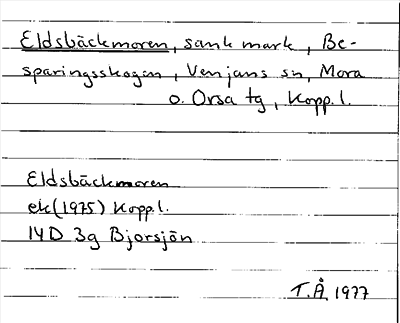 Eldsbäckmoren, sank mark, Be-
sparingsskogen, Venjans sn, Mora
o. Orsa tg, Kopp. l.
Eldsbäckmoren
ek (1975) Kopp l.
14D 3g Bjorsjön
T.Å. 1977